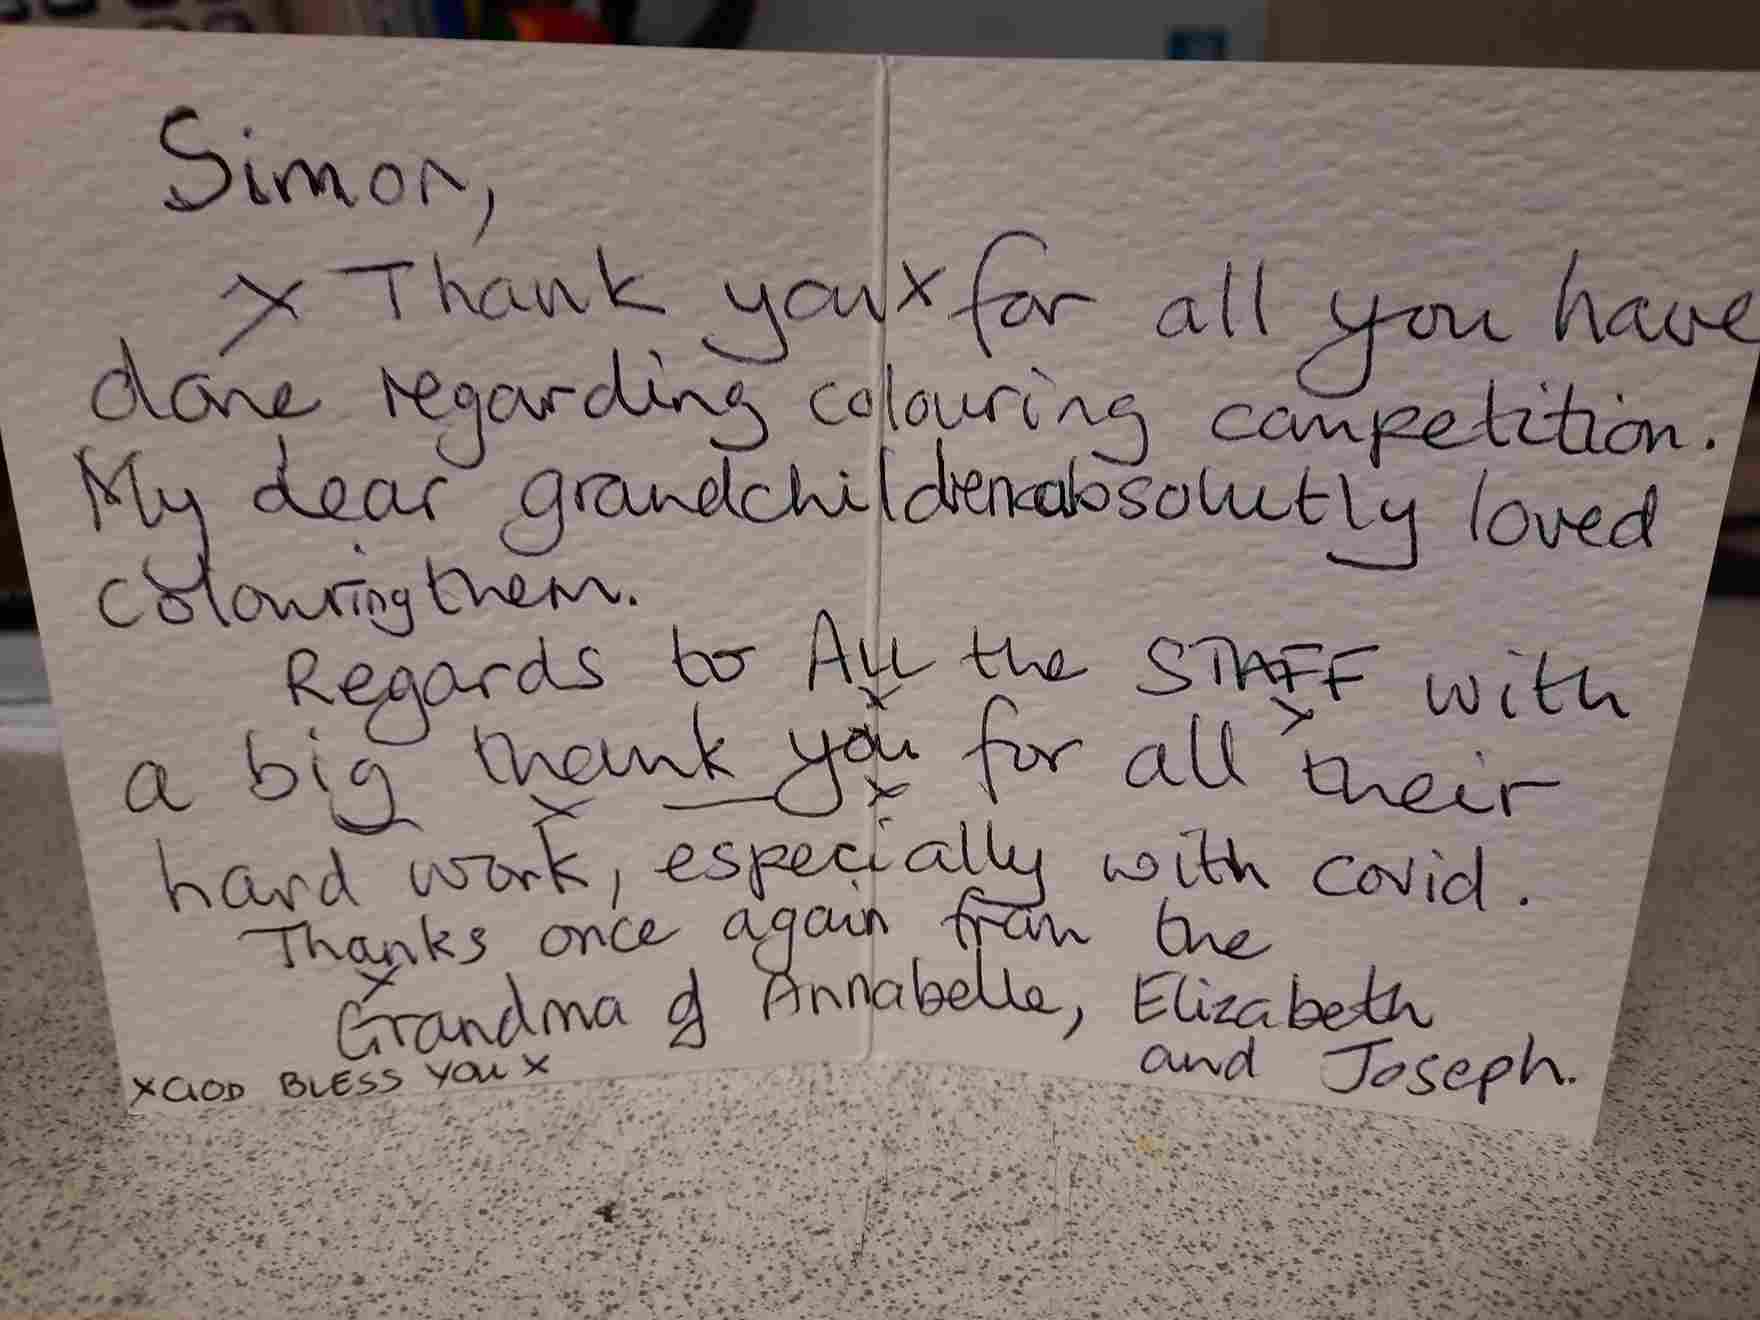 Simon,
x Thank you x for all you have
done regarding colouring competition.
My dear grandchildren absolutly loved
colouring them.
Regards to All the STAFF with
a big thank you for all their
hard work, especially with covid.
Thanks once again from the
Grandma of Annabelle, Elizabeth
and Joseph.
x GOD BLESS YOU x